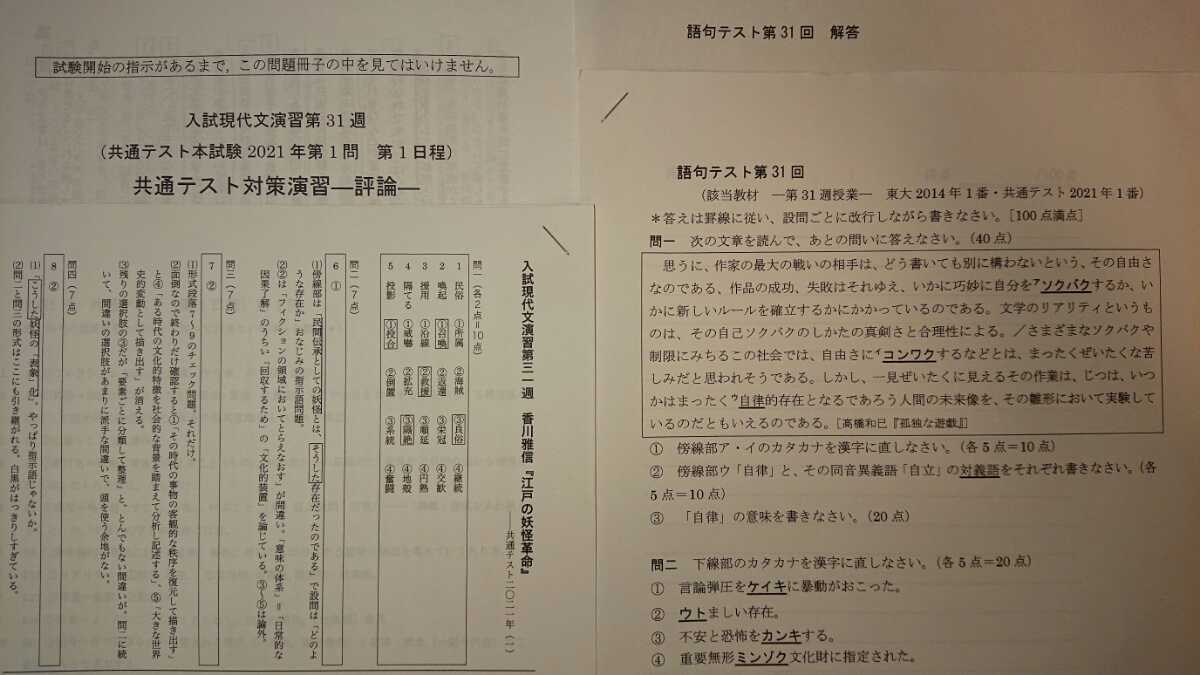 試験開始の指示があるまで，この問題冊子の中を見てはいけません。
入試現代文演習第31週
（共通テスト本試験2021年第1問　第1日程）
共通テスト対策演習―評論―
入試現代文演習第三一週　香川雅信『江戸の妖怪革命』
――共通テスト二〇二一年（一）
問一（各2点＝10点）
1　民俗　①所属　②海賊　③良俗　④継続
2　喚起　①召喚　②返還　③栄冠　④交歓
3　援用　①沿線　②救援　③順延　④円熟
4　隔てる　①威嚇　②拡充　③隔絶　④地殻
5　投影　①投合　②倒置　③系統　④奮闘
問二（7点）
6　①
⑴傍線部は「民間伝承としての妖怪とは、そうした存在だったのである」で設問は「どのよ
うな存在か」おなじみの指示語問題。
⑵②は「フィクションの領域においてとらえなおす」が間違い。「意味の体系」＝「日常的な
因果了解」のうちい「回収するため」の「文化的装置」を論じている。③～⑤は論外。
問三（7点）
7　②
⑴形式段落7～9のチェック問題。それだけ。
⑵面倒なので終わりだけ確認すると①「その時代の事物の客観的な秩序を復元して描き出す」
と④「ある時代の文化的特徴を社会的な背景を踏まえて分析し記述する」、⑤「大きな世界
史的変動として描き出す」が消える。
⑶残りの選択肢の③だが「要素ごとに分類して整理」と、とんでもない間違いが。問二に続
いて、間違いの選択肢があまりに派手な間違いで、頭を使う余地がない。
問四（7点）
8　②
⑴「こうした妖怪の「表象」化」。やっぱり指示語じゃないか。
⑵問二と問三の形式はここにも引き継がれる。白黒がはっきりしすぎている。
語句テスト第31回　解答
語句テスト第31回
（該当教材　―第31週授業―　東大2014年1番・共通テスト2021年1番）
＊答えは罫線に従い、設問ごとに改行しながら書きなさい。［100点満点］
問一　次の文章を読んで、あとの問いに答えなさい。（40点）
思うに、作家の最大の戦いの相手は、どう書いても別に構わないという、その自由さ
なのである、作品の成功、失敗はそれゆえ、いかに巧妙に自分をアソクバクするか、い
かに新しいルールを確立するかにかかっているのである。文学のリアリティというもの
は、その自己ソクバクのしかたの真剣さと合理性による。／さまざまなソクバクや
制限にみちるこの社会では、自由さにイコンワクするなどとは、まったくぜいたくな苦
しみだと思われそうである。しかし、一見ぜいたくに見えるその作業は、じつは、いつ
かはまったくウ自律的存在となるであろう人間の未来像を、その雛形において実験して
いるのだともいえるのである。［高橋和巳『孤独な遊戯』］
①　傍線部ア・イのカタカナを漢字に直しなさい。（各5点＝10点）
②　傍線部ウ「自律」と、その同音異義語「自立」の対義語をそれぞれ書きなさい。（各
5点＝10点）
③　「自律」の意味を書きなさい。（20点）
問二　下線部のカタカナを漢字に直しなさい。（各5点＝20点）
①　言論弾圧をケイキに暴動がおこった。
②　ウトましい存在。
③　不安と恐怖をカンキする。
④　重要無形ミンゾク文化財に指定された。